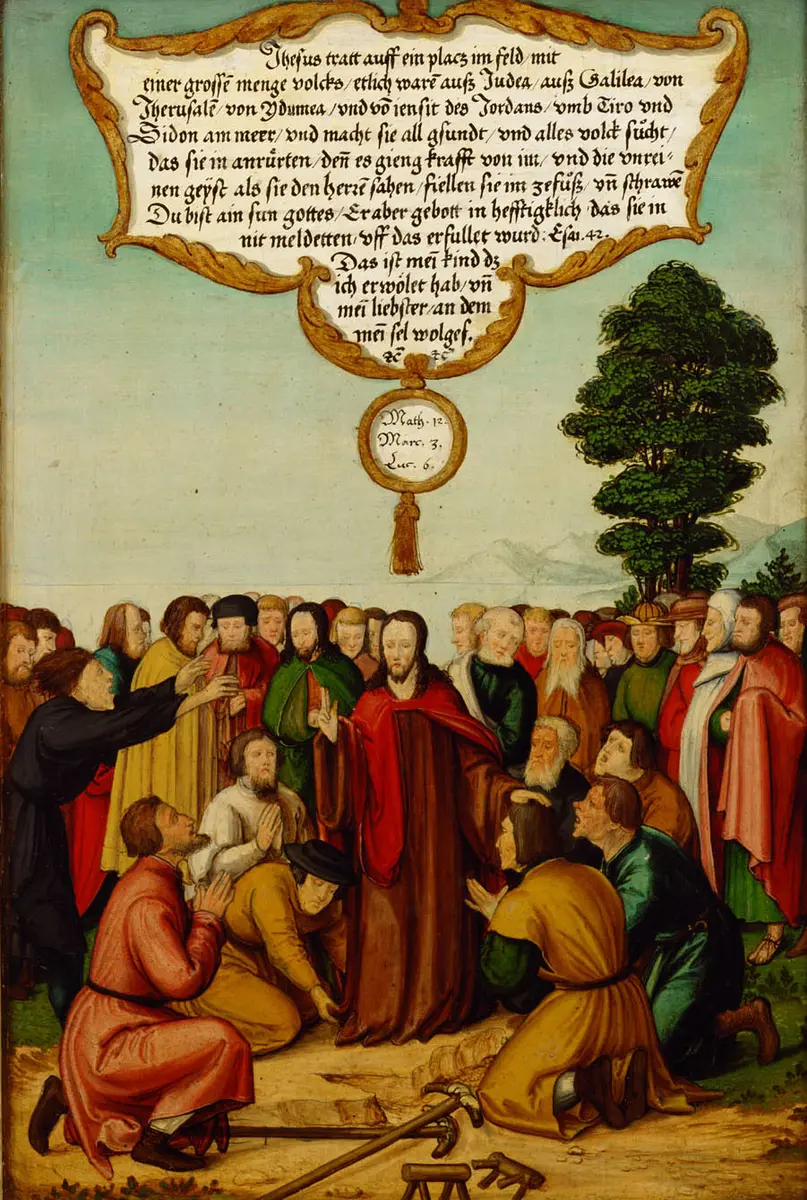 Jhesus tratt auff ein placz im feld / mit
einer grossē menge volcks / etlich warē auß Judea / auß Galilea / von
Jherusalē / von Ydumea / vnd vō iensit des Jordans / vmb Tiro vnd
Sidon am meer / vnd macht sie all gsundt / vnd alles volck sůcht /
das sie in anrůrten / deñ es gieng krafft von im / vnd die vnrei-
nen geÿst als sie den herrē sahen / fiellen sie im zefůß / vñ schrawē
Du bist ain sun gottes / Er aber gebott in hefftigklich das sie in
nit meldetten / vff das erfullet wurd : Esai. 42.
Das ist meī kind dz
ich erwölet hab / vñ
meī liebster / an dem
meī sel wolgef.
Math. 12.
Marc. 3.
Luc. 6.